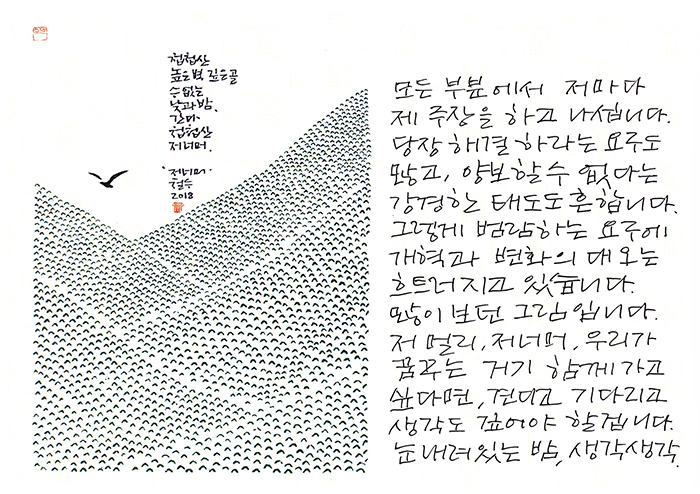 첩첩산
높은벽 깊은골
수없는
낮과밤.
간다
첩첩산
저너머.
'저너머'
철수
2018
모든 부분에서 저마다
제 주장을 하고 나섭니다.
당장 해결 하라는 요구도
많고, 양보할 수 없다는
강경한 태도도 흔합니다.
그렇게 범람하는 요구에
개혁과 변화의 대오는
흐트러지고 있습니다.
많이 보던 그림입니다.
저 멀리, 저너머, 우리가
꿈꾸는 거기 함께 가고
싶다면, 견디고 기다리고
생각도 깊어야 할겁니다.
눈내려있는 밤, 생각생각.